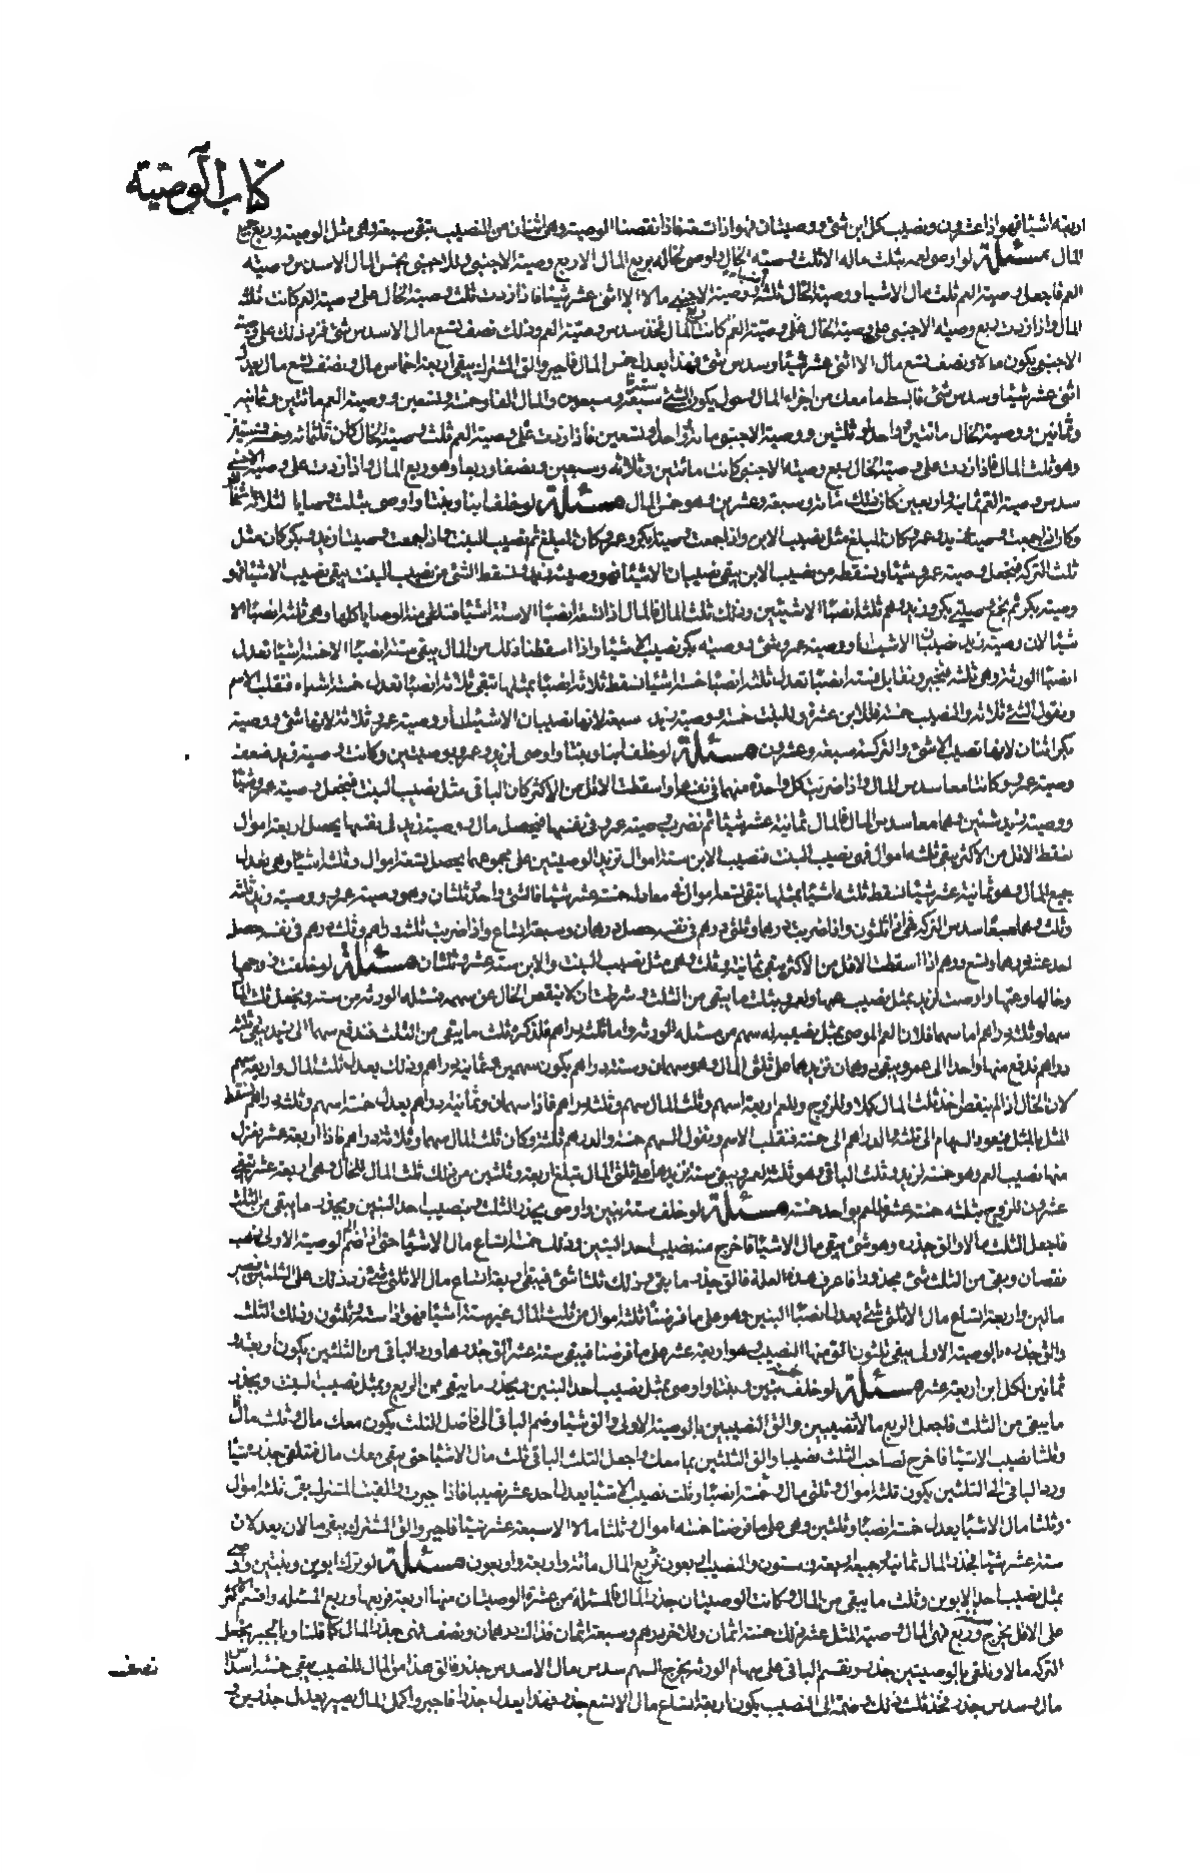 كتاب الوصية
اربعة اشيا فهو اذا عشرون ونصيب كل ابن شئ ووصيتان فهو اذا تسعة فاذا نقصنا الوصية وهى اثنان من النصيب تبقى سبعة وهى مثل الوصية وربع جميع
المال مسئلة لو اوصى لعمه بثلث ماله الا ثلث وصية الخال واوصى لخاله بربع المال الا ربع وصية الاجنبى وللاجنبى بخمس المال الا سدس وصية
العم فاجعل وصية العم ثلث مال الا شيا ووصية الخال ثلثة ووصية الاجنبى مالا الا اثنى عشر شيئا فاذا زدت ثلث وصية الخال على وصية العم كانت ثلث
المال واذا زدت ربع وصية الاجنبى على وصية الخال كانت ربع المال فخذ سدس وصية العم وذلك نصف تسع مال الا سدس شئ فزد ذلك على وصية
الاجنبى يكون مالا ونصف تسع مال الا اثنى عشر شيئا وسدس شئ فهذا يعدل خمس المال فاجبر والق المشترك يبقى اربعة اخماس مال ونصف تسع مال يعدل
اثنى عشر شيئا وسدس شئ فابسط ما معك من اجزاء المال يكون الشئ سبعة وسبعين والمال الفا وخمسة وتسعين ووصية العم مائتين وثمانية
وثمانين ووصية الخال مائتين وواحد وثلثين ووصية الاجنبى مائة واحد وتسعين فاذا زدت على وصية العم ثلث وصية الخال كان ثلثمائة وخمسة وستين
وهو ثلث المال فاذا زدت على وصية الخال ربع وصية الاجنبى كانت مائتين وثلاثة وسبعين ونصفا وربعا وهو ربع المال واذا زدت على وصية الاجنبى
سدس وصية العم ثمانية واربعين كان ذلك مائة وسبعة وعشرين وهو خمس المال مسئلة لو خلف ابنا وبنتا واوصى بثلث وصايا لثلاثة
وكان اذا جمعت وصيتا زيد وعمرو كان المبلغ مثل نصيب الابن واذا جمعت وصيتا بكر وعمرو كان المبلغ ثم نصيب البنت واذا جمعت وصيتا زيد وبكر كان مثل
ثلث التركة فنجعل وصية عمرو شيئا ونسقطه من نصيب الابن يبقى نصيبان الا شيئا فهو وصية زيد ونسقط الشئ من نصيب البنت يبقى نصيب الا شيئا فهو
وصية بكر ثم نجمع وصيتى بكر وزيد وهم ثلثة انصبا الا شيئين وذلك ثلث المال فالمال اذا تسعة انصبا الا ستة اشيا فنلقى منه الوصايا كلها وهى ثلثة انصبا الا
شيا لان وصية زيد نصيبان الا شيئا ووصية عمرو شئ ووصية بكر نصيب الا شيئا واذا اسقطنا ذلك من المال يبقى ستة انصبا الا خمسة اشيا تعدل
انصبا الورثة وهى ثلثة فنجبر ونقابل فستة انصبا تعدل ثلثة انصبا خمسة اشيا نسقط ثلاثة انصبا بمثلها تبقى ثلاثة انصبا تعدل خمسة اشياء فنقلب الاسم
ونقول الشئ ثلاثة والنصيب خمسة فللابن عشرة وللبنت خمسة ووصية زيد سبعة لانها نصيبان الا شيئا ووصية عمرو ثلاثة لانها شئ ووصية
بكر اثنان لانها نصيب الا شئ والتركة سبعة وعشرون مسئلة لو خلف ابنا وبنتا واوصى لزيد وعمرو بوصيتين وكانت وصية زيد ضعف
وصية عمرو وكانتا معا سدس المال واذا ضربت كل واحدة منهما فى نفسها واسقطت الاقل من الاكثر كان الباقى مثل نصيب البنت فنجعل وصية عمرو شيئا
ووصية زيد شئين وهما معا سدس المال فالمال ثمانية عشر شيئا ثم نضرب وصية عمرو فى نفسها فيحصل مال ووصية زيد فى نفسها يحصل اربعة اموال
نسقط الاقل من الاكثر يبقى ثلثة اموال فهى نصيب البنت فنصيب الابن ستة اموال تزيد الوصيتين على مجموعهما يحصل تسعة اموال وثلثة اشيا وهى تعدل
جميع المال وهو ثمانية عشر شيئا نسقط ثلثة اشيا بمثلها تبقى تسعة اموال معادلة خمسة عشر شيئا فالشئ واحد وثلثان وهو وصية عمرو ووصية زيد ثلثة
وثلث وهما جميعا سدس التركة فهى اذا ثلثون واذا ضربت درهما وثلثى درهم فى نفسه حصل درهمان وسبعة اتساع واذا ضربت ثلثة دراهم وثلث درهم فى نفسه حصل
احد عشر درهما وتسع درهم اذا اسقطت الاقل من الاكثر يبقى ثمانية وثلث وهى مثل نصيب البنت والابن ستة عشر وثلثان مسئلة لو خلفت زوجها
وخالها وعمها واوصت لزيد بمثل نصيب عمها ولعمرو بثلث ما يبقى من الثلث وشرطت ان لا ينقص الخال عن سهمه فمسئلة الورثة من ستة ونجعل ثلث المال
سهما وثلثة دراهم اما سهما فلان العم الموصى بمثل نصيبه له سهم من مسئلة الورثة واما ثلثة دراهم فلذكره ثلث ما يبقى من الثلث فندفع سهما الى زيد يبقى ثلثة
دراهم ندفع منها واحدا الى عمرو ويبقى درهمان نزيدهما على ثلثى المال وهو سهمان وستة دراهم يكون سهمين وثمانية دراهم وذلك يعدل ثلث المال واربعة سهم
لان الخال اذا لم ينقص اخذ ثلث المال كملا وللزوج وللعم اربعة اسهم وثلث المال سهم وثلثة دراهم فاذا سهمان وثمانية دراهم يعدل خمسة اسهم وثلثة دراهم فنسقط
المثل بالمثل فيعود السهام الى ثلثة والدراهم الى خمسة فنقلب الاسم ونقول السهم خمسة والدرهم ثلثة وكان ثلث المال سهما وثلاثة دراهم فاذا اربعة عشر فنعزل
منها نصيب العم وهو خمسة لزيد وثلث الباقى وهو ثلثة لعمرو يبقى ستة نزيدها على ثلثى المال تبلغ اربعة وثلثين من ذلك ثلث المال للخال وهى اربعة عشر تبقى
عشرون للزوج بثلثة خمسة عشر وللعم بواحد خمسة مسئلة لو خلف ستة بنين واوصى بجذر الثلث وبنصيب احد البنين وبجذر ما يبقى من الثلث
فاجعل الثلث مالا والق جذره وهو شئ يبقى مال الا شيئا فاخرج منه نصيب احد البنين وذلك خمسة اتساع مال الا شيئا حتى اذا ضم الى الوصية الاولى ذهب
نقصان وبقى من الثلث شئ مجذور فاعرف هذه العلة فالق جذر ما بقى وذلك ثلثا شئ فيبقى اربعة اتساع مال الا ثلثى شئ زد ذلك على الثلثين تصير
مالين واربعة اتساع مال الا ثلثى شئ يعدل انصبا البنين وهو على ما فرضنا ثلثة اموال من ثلث المال غير ستة اشيا فهو اذا ستة وثلثون وذلك الثلث
والق جذره بالوصية الاولى يبقى ثلثون الق منها النصيب وهو اربعة عشر على ما فرضنا فيبقى ستة عشر الق جذرها ورد الباقى من الثلثين يكون اربعة و
ثمانين لكل ابن اربعة عشر مسئلة لو خلف خمسة بنين وبنتا واوصى بمثل نصيب احد البنين وبجذر ما يبقى من الربع وبمثل نصيب البنت وبجذر
ما يبقى من الثلث فلجعل الربع مالا ونصيبين والق النصيبين بالوصية الاولى والق شيا وضم الباقى الى فاضل الثلث يكون معك مال وثلث مال
وثلثا نصيب الا شيئا فاخرج لصاحب الثلث نصيبا والق الثلثين بما معك واجعل الثلث الباقى ثلث مال الا شيئا حتى يبقى معك مال فتلقى جذره شيئا
ورد الباقى الى الثلثين يكون ثلثة اموال وثلثى مال وخمسة انصبا وثلث نصيب الا شيئا يعدل احد عشر نصيبا فاذا جبرت والقيت المشترك بقى ثلثة اموال
وثلثا مال الا شيا يعدل خمسة انصبا وثلثين وهى على ما فرضنا خمسة اموال وثلثا مال الا سبعة عشر شيئا فاجبر والق المشترك يبقى مالان يعدلان
ستة عشر شيئا فجذر المال ثمانية وجميعه اربعة وستون والنصيب اربعون فربع المال مائة واربعة واربعون مسئلة لو ترك ابوين وبنتين واوصى
بمثل نصيب احد الابوين وثلث ما يبقى من المال وكانت الوصيتان جذر المال فالمسئلة من عشرة والوصيتان منها اربعة فربعها وربع المسئلة واقسم الاكثر
على الاقل يخرج وربع فهى المال وصية المثل عشر ذلك خمسة اثمان وثلث درهم وسبعة اثمان فذاك درهمان ونصف فهى جذر المال كما قلنا وبالجبر يجعل
التركة مالا ونلقى بالوصيتين جذره ونقسم الباقى على سهام الورثة يخرج السهم سدس مال الا سدس جذر فالق هذا من المال للنصيب يبقى خمسة اسداس
مال وسدس جذر فخذ ثلث ذلك وضمه الى النصيب يكون اربعة اتساع مال الا تسع جذر فهذا يعدل جذرا فاجبر واكمل المال يصير يعدل جذرين و
نصف